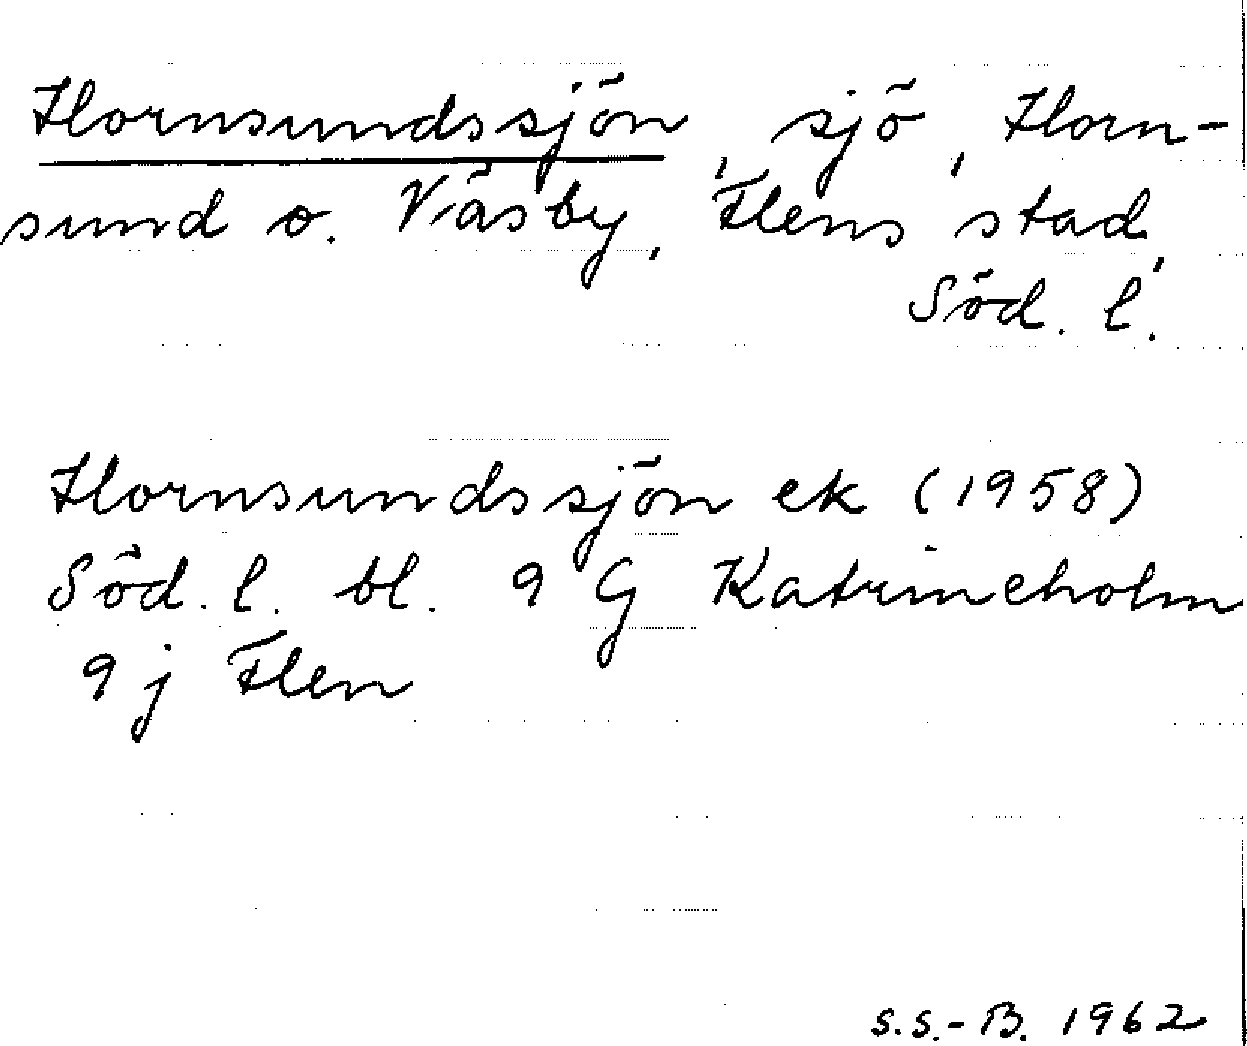 Hornsundssjön, sjö, Horn-
sund o. Väsby, Flens stad,
Söd. l.
Hornsundssjön ek (1958)
Söd. l. bl. 9 G Katrineholm
9 j Flen
S.S.-B. 1962